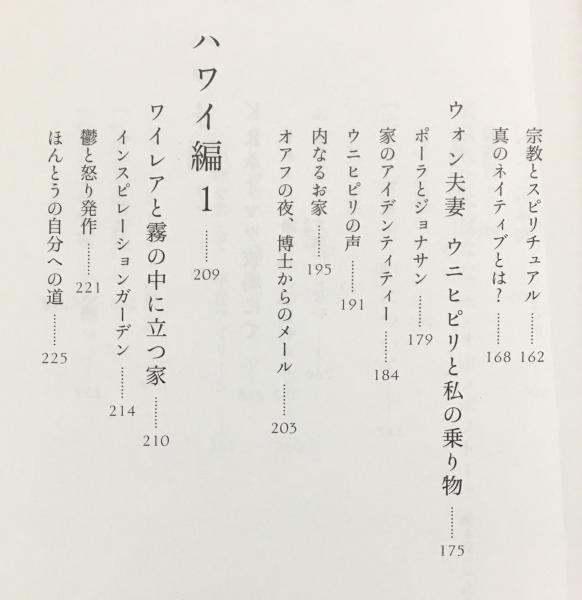 宗教とスピリチュアル ……… 162
真のネイティブとは? ……… 168
ウォン夫妻 ウニヒピリと私の乗り物 ……… 175
ポーラとジョナサン ……… 179
家のアイデンティティー ……… 184
ウニヒピリの声 ……… 191
内なるお家 ……… 195
オアフの夜、博士からのメール ……… 203
ハワイ編1 ……… 209
ワイレアと霧の中に立つ家 ……… 210
インスピレーションガーデン ……… 214
鬱と怒り発作 ……… 221
ほんとうの自分への道 ……… 225